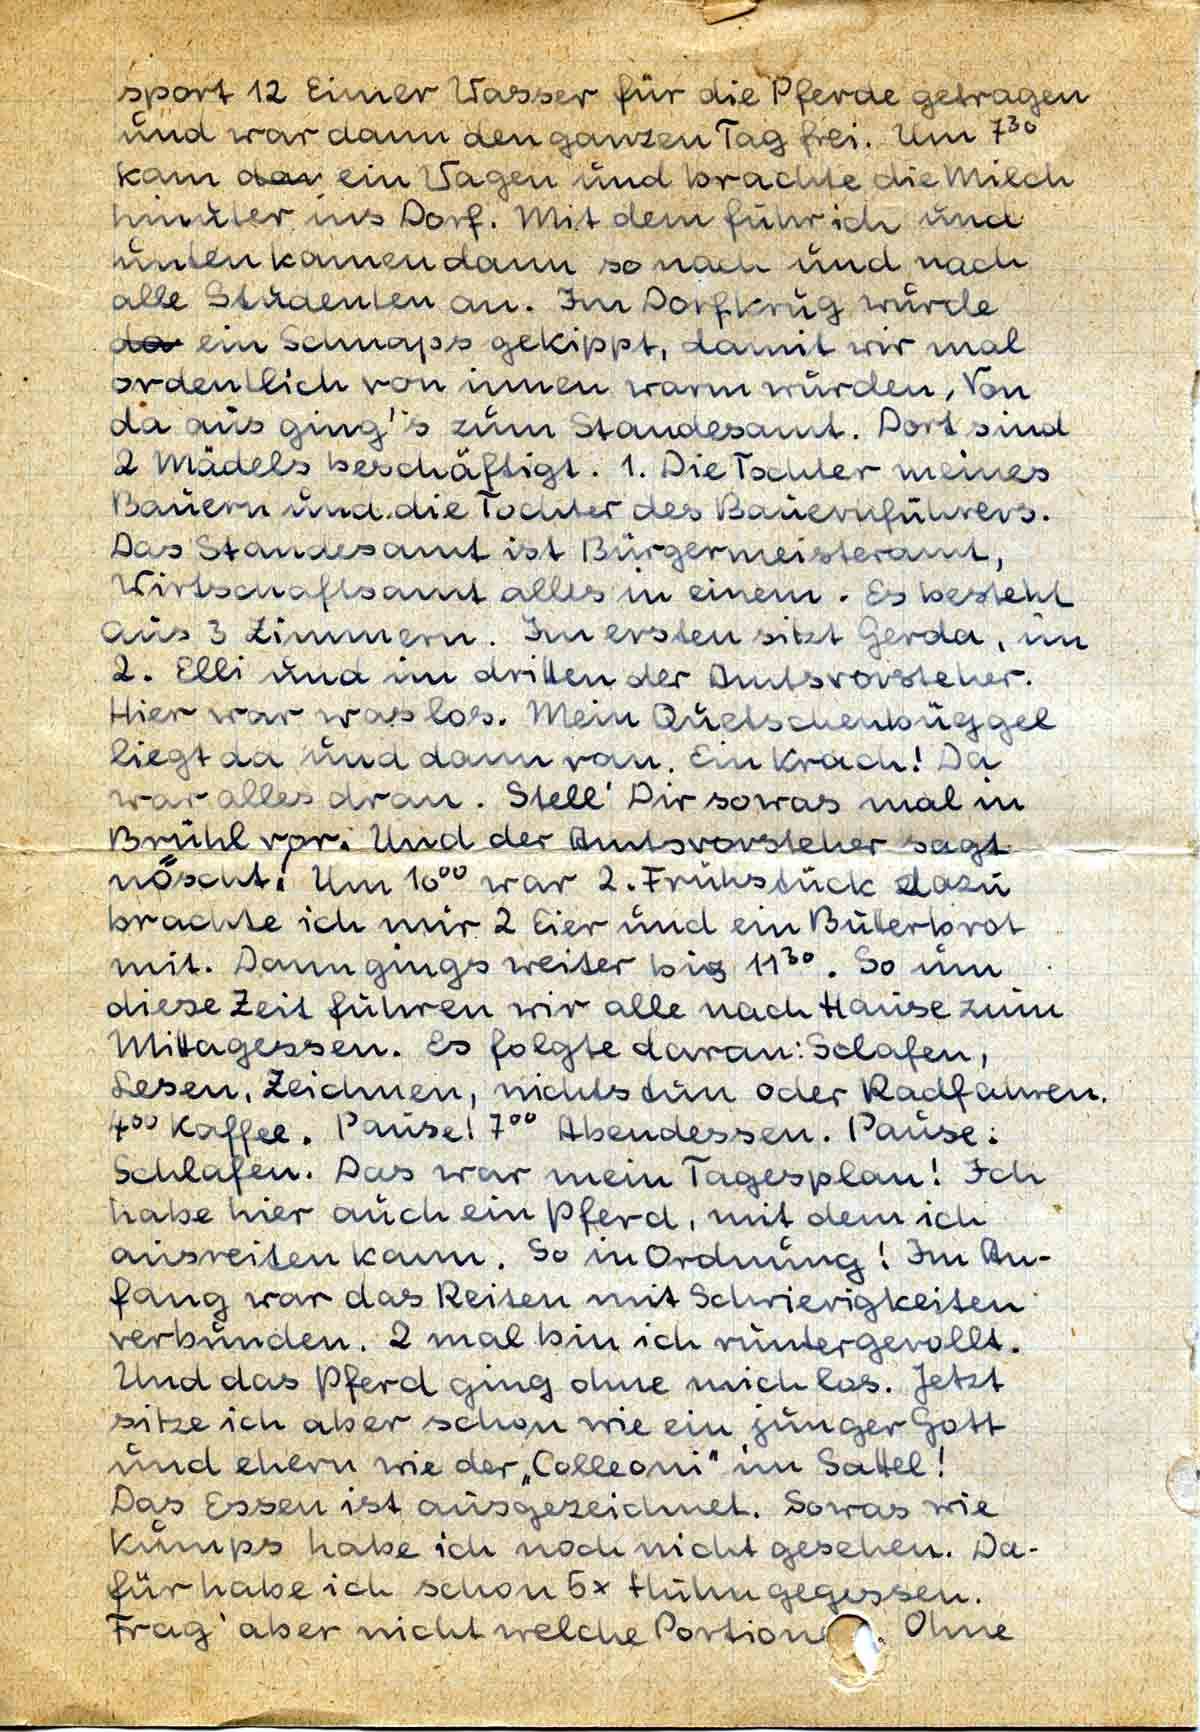 sport 12 Eimer Wasser für die Pferde getragen
und war dann den ganzen Tag frei. Um 7³⁰
kam dar ein Wagen und brachte die Milch
hinuter ins Dorf. Mit dem fuhr ich und
unten kamen dann so nach und nach
alle Studenten an. Im Dorfkrug wurde
da ein Schnaps gekippt, damit wir mal
ordentlich von innen warm wurden, Von
da aus ging's zum Standesamt. Dort sind
2 Mädels beschäftigt. 1. Die Tochter meines
Bauern und die Tochter des Bauernführers.
Das Standesamt ist Bürgermeisteramt,
Wirtschaftsamt alles in einem. Es besteht
aus 3 Zimmern. Im ersten sitzt Gerda, im
2. Elli und im dritten der Amtsvorsteher.
Hier war was los. Mein Quetschenbüggel
liegt da und dann ran. Ein Krach! Da
war alles dran. Stell' Dir sowas mal in
Brühl vor. Und der Amtsvorsteher sagt
nöscht! Um 10⁰⁰ war 2. Frühstück dazu
brachte ich mir 2 Eier und ein Buterbrot
mit. Dann gings weiter bis 11³⁰. So um
diese Zeit fuhren wir alle nach Hause zum
Mittagessen. Es folgte daran: Sclafen,
Lesen, Zeichnen, nichtstun oder Radfahren.
4⁰⁰ Kaffee. Pause! 7⁰⁰ Abendessen. Pause:
Schlafen. Das war mein Tagesplan! Ich
habe hier auch ein Pferd, mit dem ich
ausreiten kann. So in Ordnung! Im An-
fang war das Reiten mit Schwierigkeiten
verbunden. 2 mal bin ich runtergerollt.
Und das Pferd ging ohne mich los. Jetzt
sitze ich aber schon wie ein junger Gott
und ehern wie der „Colleoni" im Sattel!
Das Essen ist ausgezeichnet. Sowas wie
Kumps habe ich noch nicht gesehen. Da-
für habe ich schon 5x Huhn gegessen.
Frag' aber nicht welche Portion . Ohne